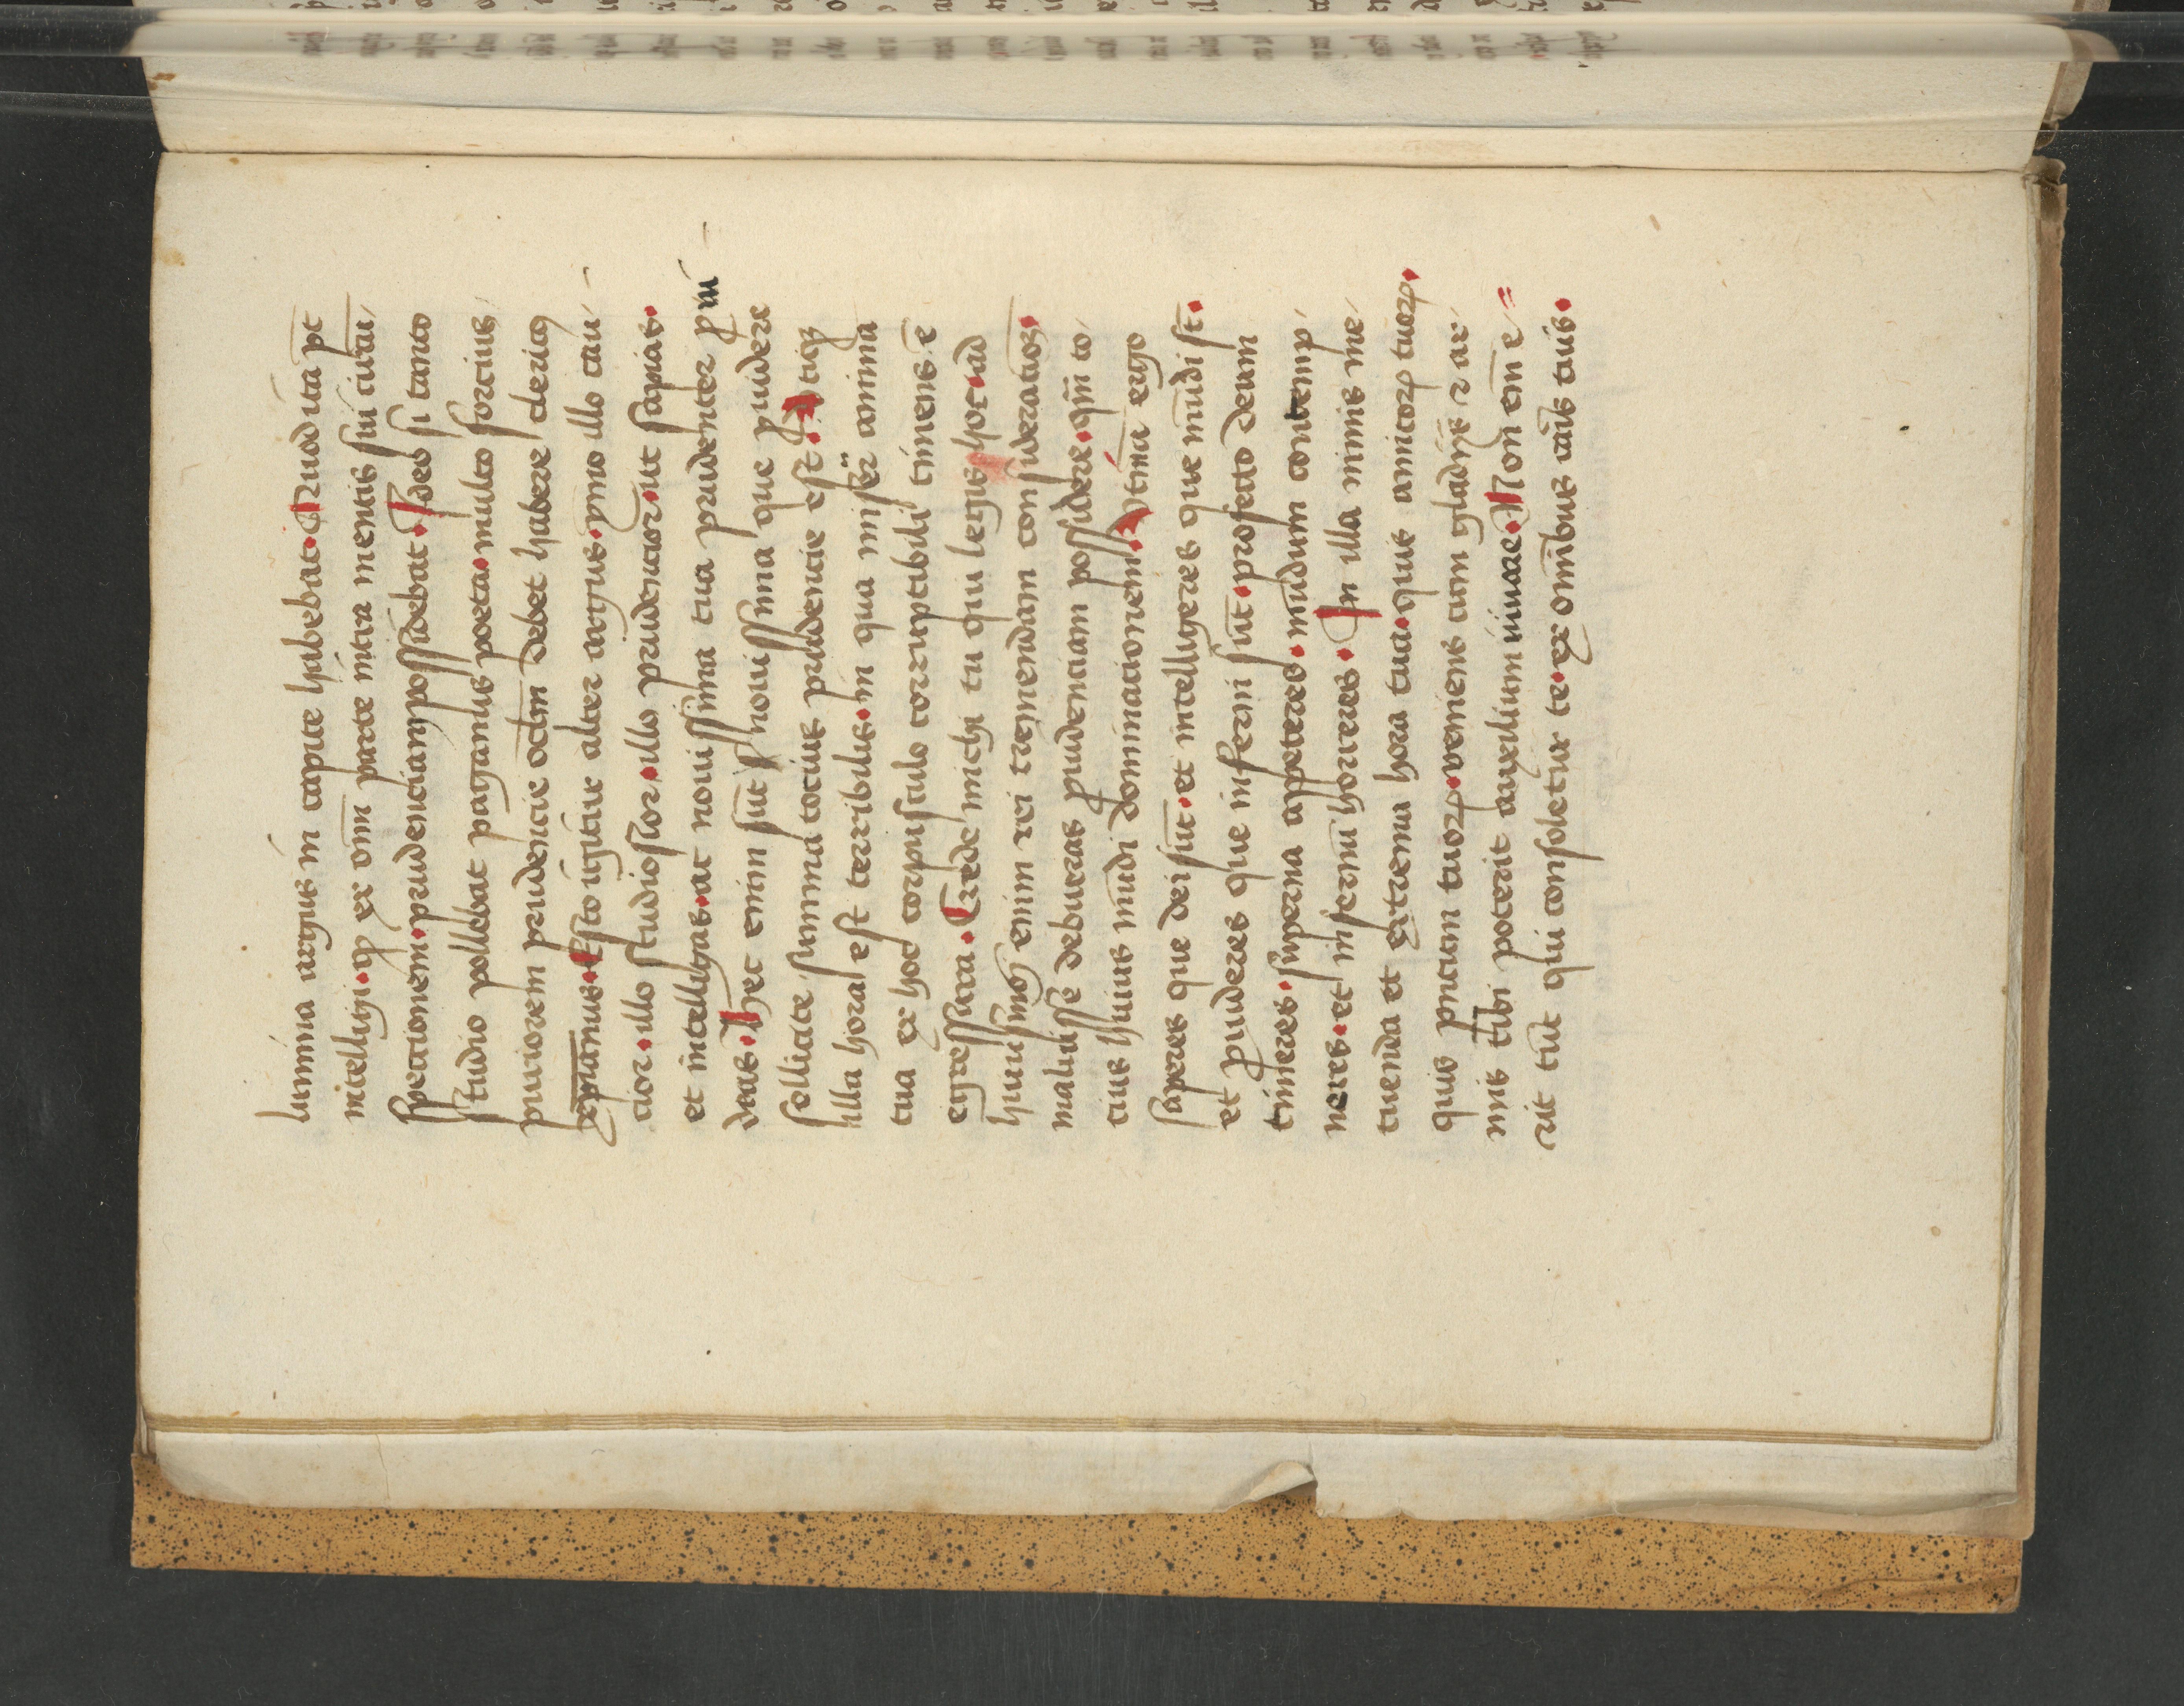 lumina argus in capite habebat. Quod ita pt̄
intelligi. ꝙ ex om̄i parte mira mentis sui circū
spectionem. prudenciam possidebat. Ideo si tanto
studio pollebat paganus poeta. multo forcius
puriorem prudencie octm̄ debet habere clericꝰ
xp̄ianus. Esto igitur alter argus. ymo illo cau
cior. illo studiosior. illo prudencior. ut sapias.
et intelligas. ac novissima tua prudenter ꝓui
deas. Hec enim sūt novissima que ꝓuidere
sollicite summa tocius prudencie est. Utiqꝫ
illa hora est terribilis. in qua misēr anima
tua ex hoc corpusculo corruptibili timens ē
egressura. Crede michi tu qui legis hoc. ad
huiusmoi enim rei tremendam consideratioꝫ.
maluisse debueras prudenciam possidere. qm̄ to
cius huius mūdi dominacionem. Utinā ergo
saperes que dei sūt. et intelligeres que mūdi st̄.
et ꝓuideres que inferni sūt. profecto deum
timeres. superna appeteres. mūdum contemp
neres. et infernū horreres. In illa nimis me
tuenda et extrema hora tua. quis amicoꝝ tuoꝝ.
quis pncum tuoꝝ. veniens cum gladijs z ar
mis tibi poterit auxilium iuuare. Non em̄ e
rit tūc qui consoletur te. ex om̄ibus cār̄is tuis.